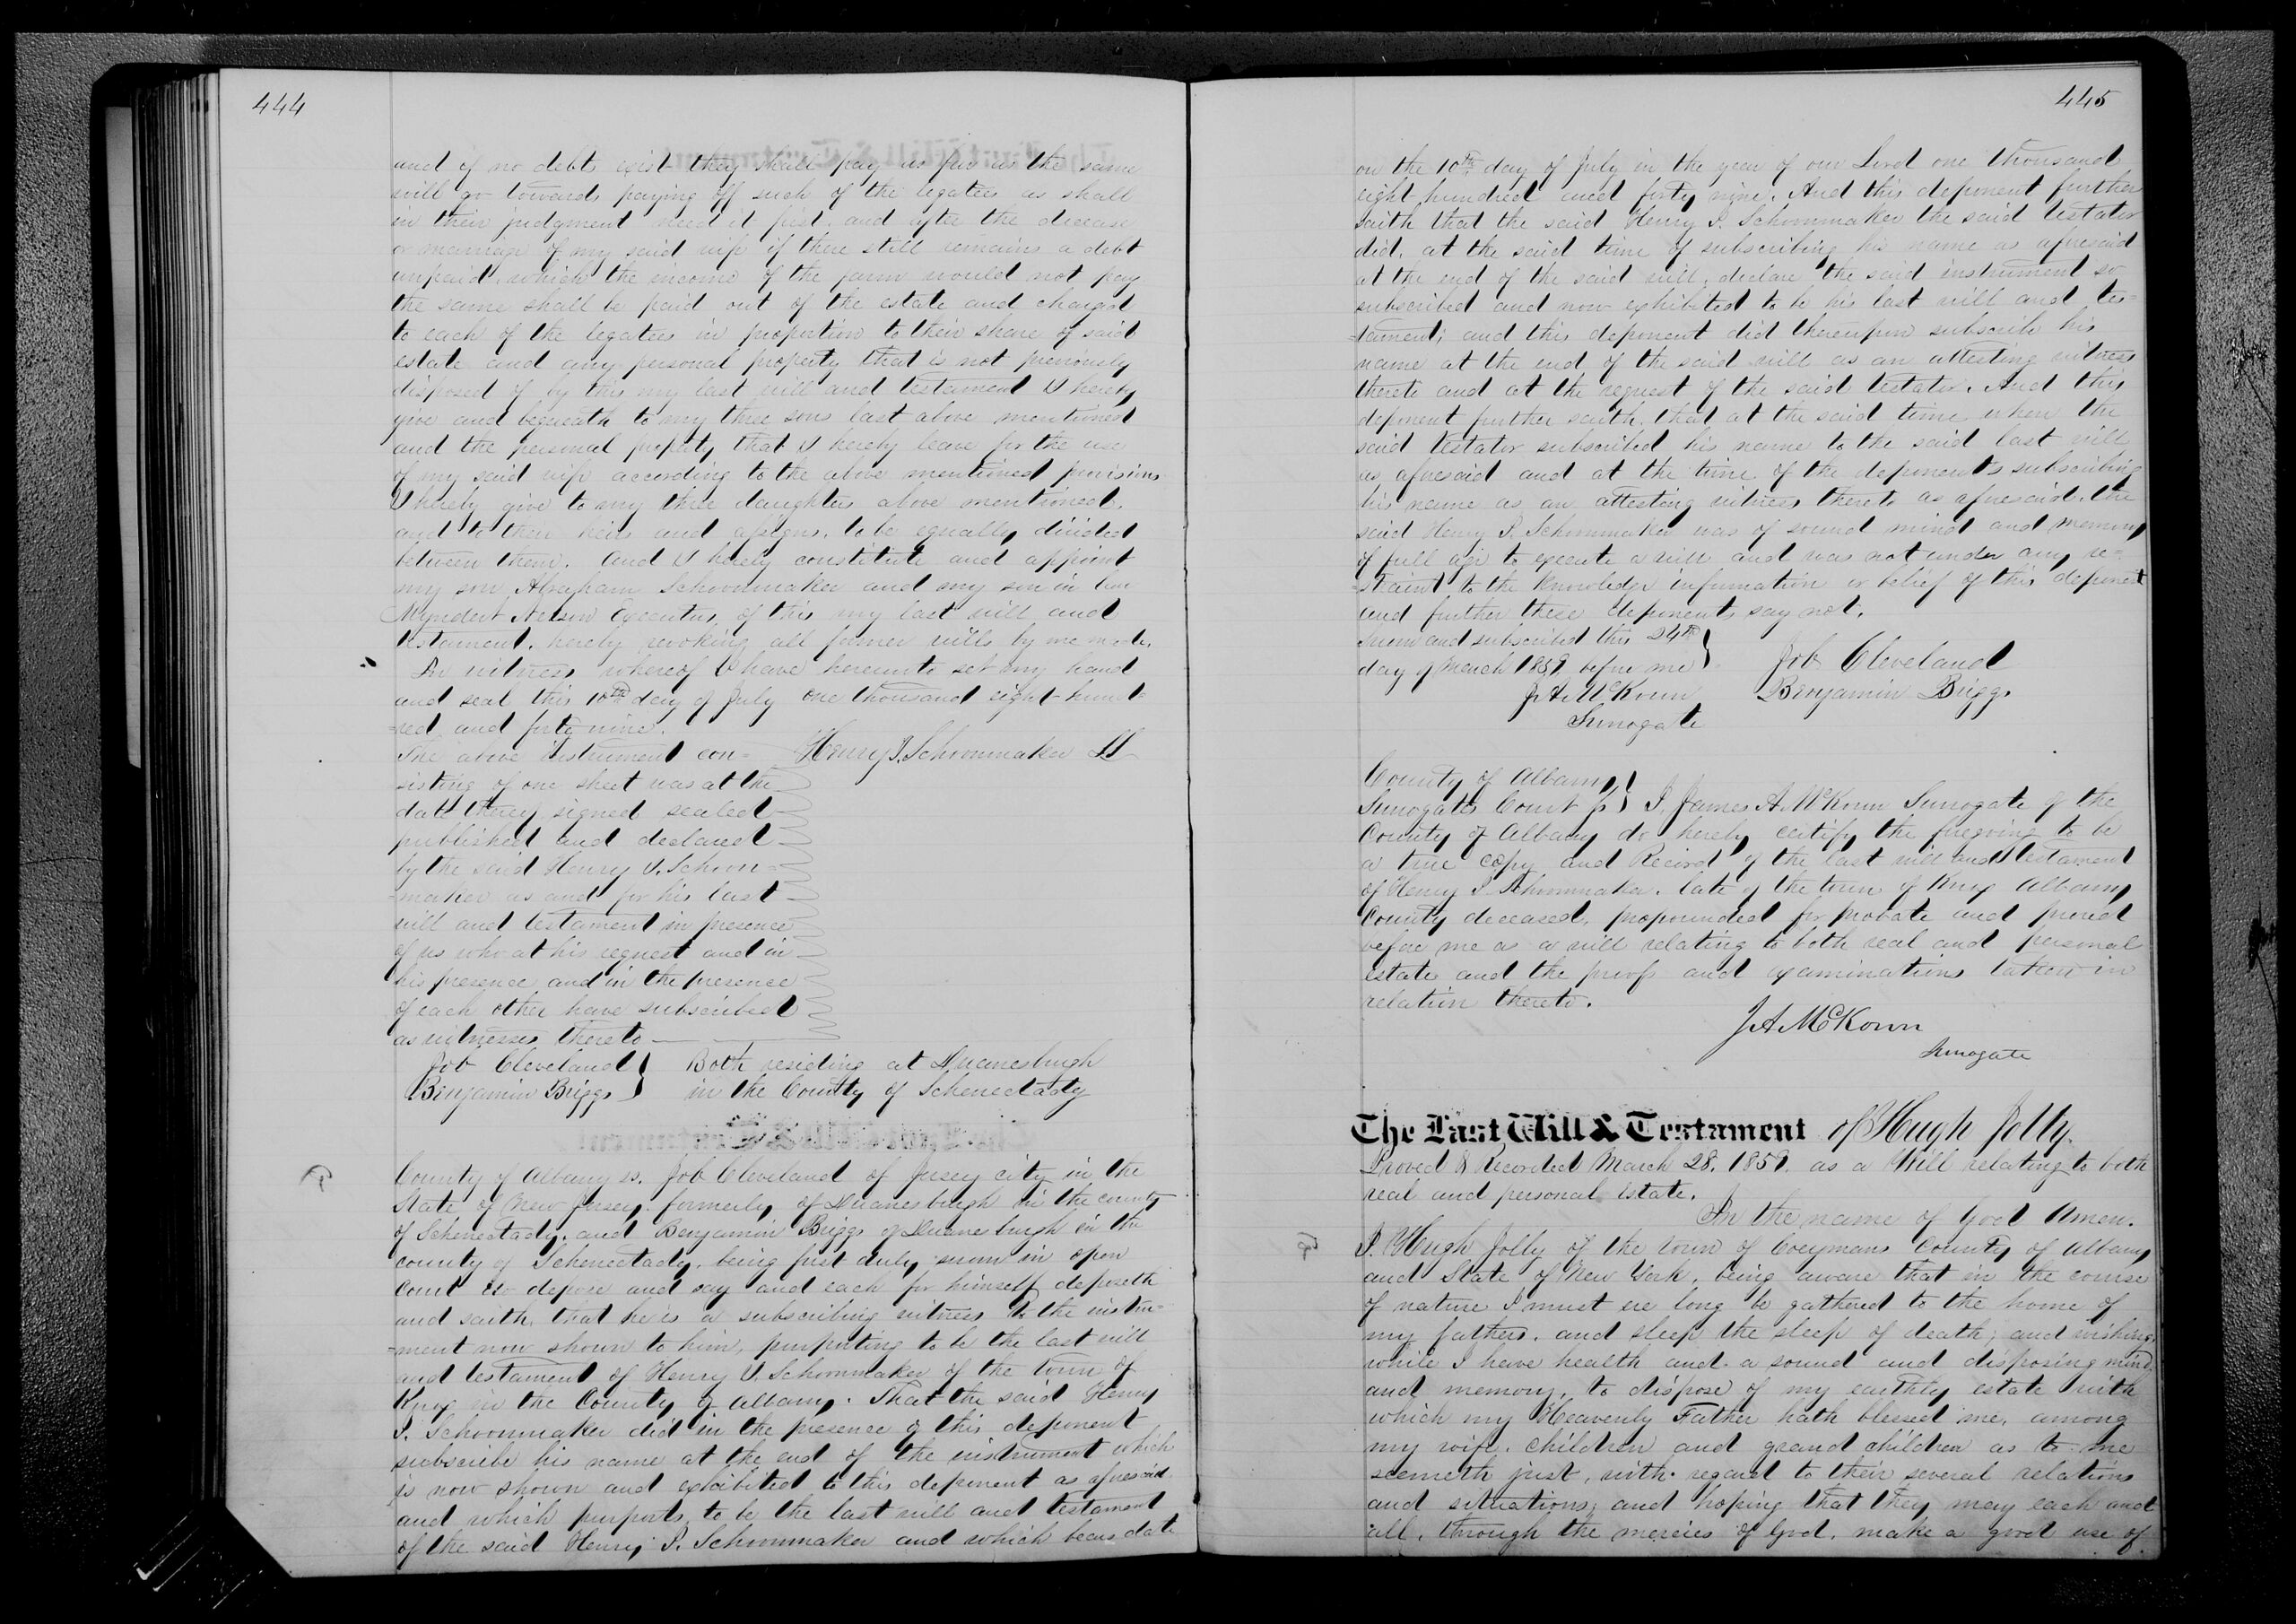 444
and if no debts exist they shall pay as far as the same
will go towards paying off such of the legatees as shall
in their judgment need it first, and after the decease
or marriage of my said wife if there still remains a debt
unpaid, which the income of the farm would not pay
the same shall be paid out of the estate and charged
to each of the legatees in proportion to their share of said
estate and any personal property that is not previously
disposed of by this my last will and testament I hereby
give and bequeath to my three sons last above mentioned
and the personal property that I hereby leave for the use
of my said wife according to the above mentioned provisions
I hereby give to my three daughters above mentioned,
and to their heirs and assigns, to be equally divided
between them. And I hereby constitute and appoint
my son Abraham Schoonmaker and my son in law
Myndert Nelson Executors of this my last will and
testament, hereby revoking all former wills by me made.
In witness whereof I have hereunto set my hand
and seal this 10th day of July one thousand eight hund-
=red and forty nine.
The above instrument con= Henry I. Schoonmaker LS
sisting of one sheet was at the
date thereof signed sealed
published and declared
by the said Henry I. Schoon-
maker as and for his last
will and testament in presence
of us who at his request and in
his presence and in the presence
of each other have subscribed
as witnesses thereto
Job Cleveland } Both residing at Duanesburgh
Benjamin Briggs } in the County of Schenectady
County of Albany ss. Job Cleveland of Jersey city in the
State of New Jersey formerly of Duanesburgh in the county
of Schenectady, and Benjamin Briggs of Duanesburgh in the
county of Schenectady, being first duly sworn in open
Court do depose and say and each for himself deposeth
and saith, that he is a subscribing witness to the instru=
=ment now shown to him, purporting to be the last will
and testament of Henry I. Schoonmaker of the town of
Knox in the County of Albany. That the said Henry
I. Schoonmaker did in the presence of this deponent
subscribe his name at the end of the instrument which
is now shown and exhibited to this deponent as aforesaid
and which purports to be the last will and testament
of the said Henry I. Schoonmaker and which bears date
445
on the 10th day of July in the year of our Lord one thousand
eight hundred and forty nine. And this deponent further
saith that the said Henry I. Schoonmaker the said testator
did, at the said time of subscribing his name as aforesaid
at the end of the said will, declare the said instrument so
subscribed and now exhibited to be his last will and tes=
=tament; and this deponent did thereupon subscribe his
name at the end of the said will as an attesting witness
thereto and at the request of the said testator. And this
deponent further saith, that at the said time when the
said testator subscribed his name to the said last will
as aforesaid and at the time of the deponents subscribing
his name as an attesting witness thereto as aforesaid, the
said Henry I. Schoonmaker was of sound mind and memory
of full age to execute a will and was not under any re=
=straint to the knowledge information or belief of this deponent
and further these deponents say not.
Sworn and subscribed this 24th }
day of March 1859 before me } Job Cleveland
J. A. McKown Benjamin Briggs
Surrogate
County of Albany }
Surrogates Court ss } I, James A. McKown Surrogate of the
County of Albany do hereby certify the foregoing to be
a true copy and Record of the last will and testament
of Henry I Schoonmaker, late of the town of Knox Albany
County deceased, propounded for probate and proved
before me as a will relating to both real and personal
estate and the proofs and examinations taken in
relation thereto.
J A McKown
Surrogate
The Last Will & Testament of Hugh Jolly.
Proved & Recorded March 28. 1859. as a Will relating to both
real and personal Estate.
In the name of God Amen.
I, Hugh Jolly of the town of Coeymans County of Albany
and State of New York, being aware that in the course
of nature I must ere long be gathered to the home of
my fathers, and sleep the sleep of death; and wishing
while I have health and a sound and disposing mind
and memory, to dispose of my earthly estate with
which my Heavenly Father hath blessed me, among
my wife, children and grand children as to me
seemeth just, with regard to their several relations
and situations; and hoping that they may each and
all, through the mercies of God, make a good use of